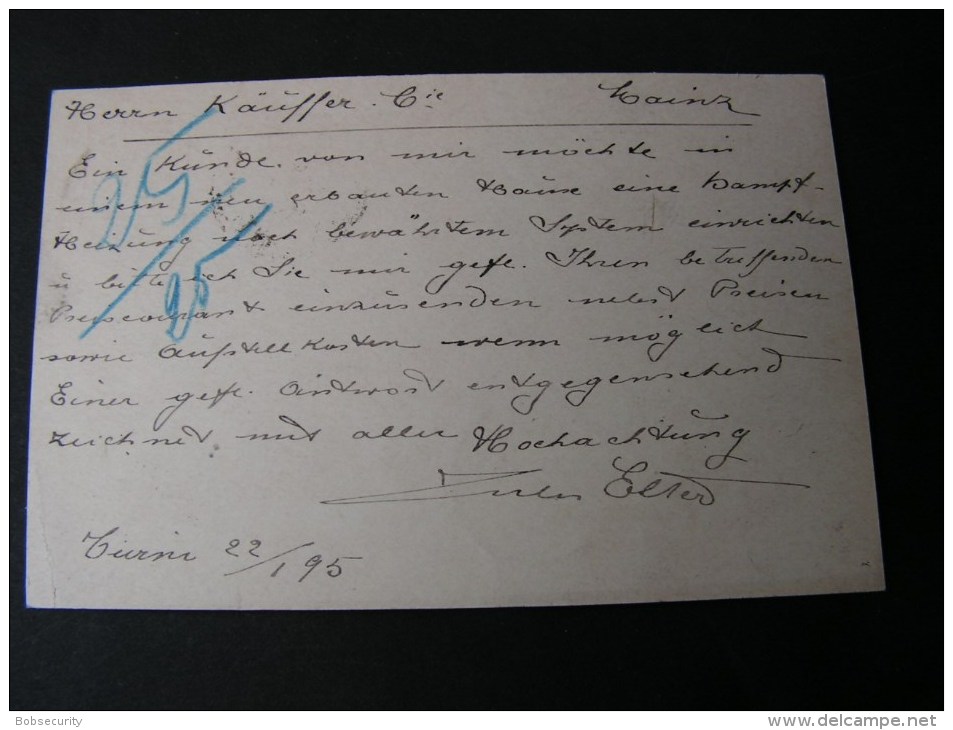 Herrn Käuffer. Cie Mainz
Ein Kunde von mir möchte in
einem neu erbauten Hause eine Dampf-
Heizung nach bewährtem System einrichten
u bitte ich Sie mir gefl. Ihren betreffenden
Preiscourant einzusenden nebst Preisen
sowie Aufstellkosten wenn möglich
Einer gefl. Antwort entgegensehend
zeichnet mit aller Hochachtung
Jules Elter
Turin 22/1 95
25/
95
Bobsecurity
http://www.delcampe.net